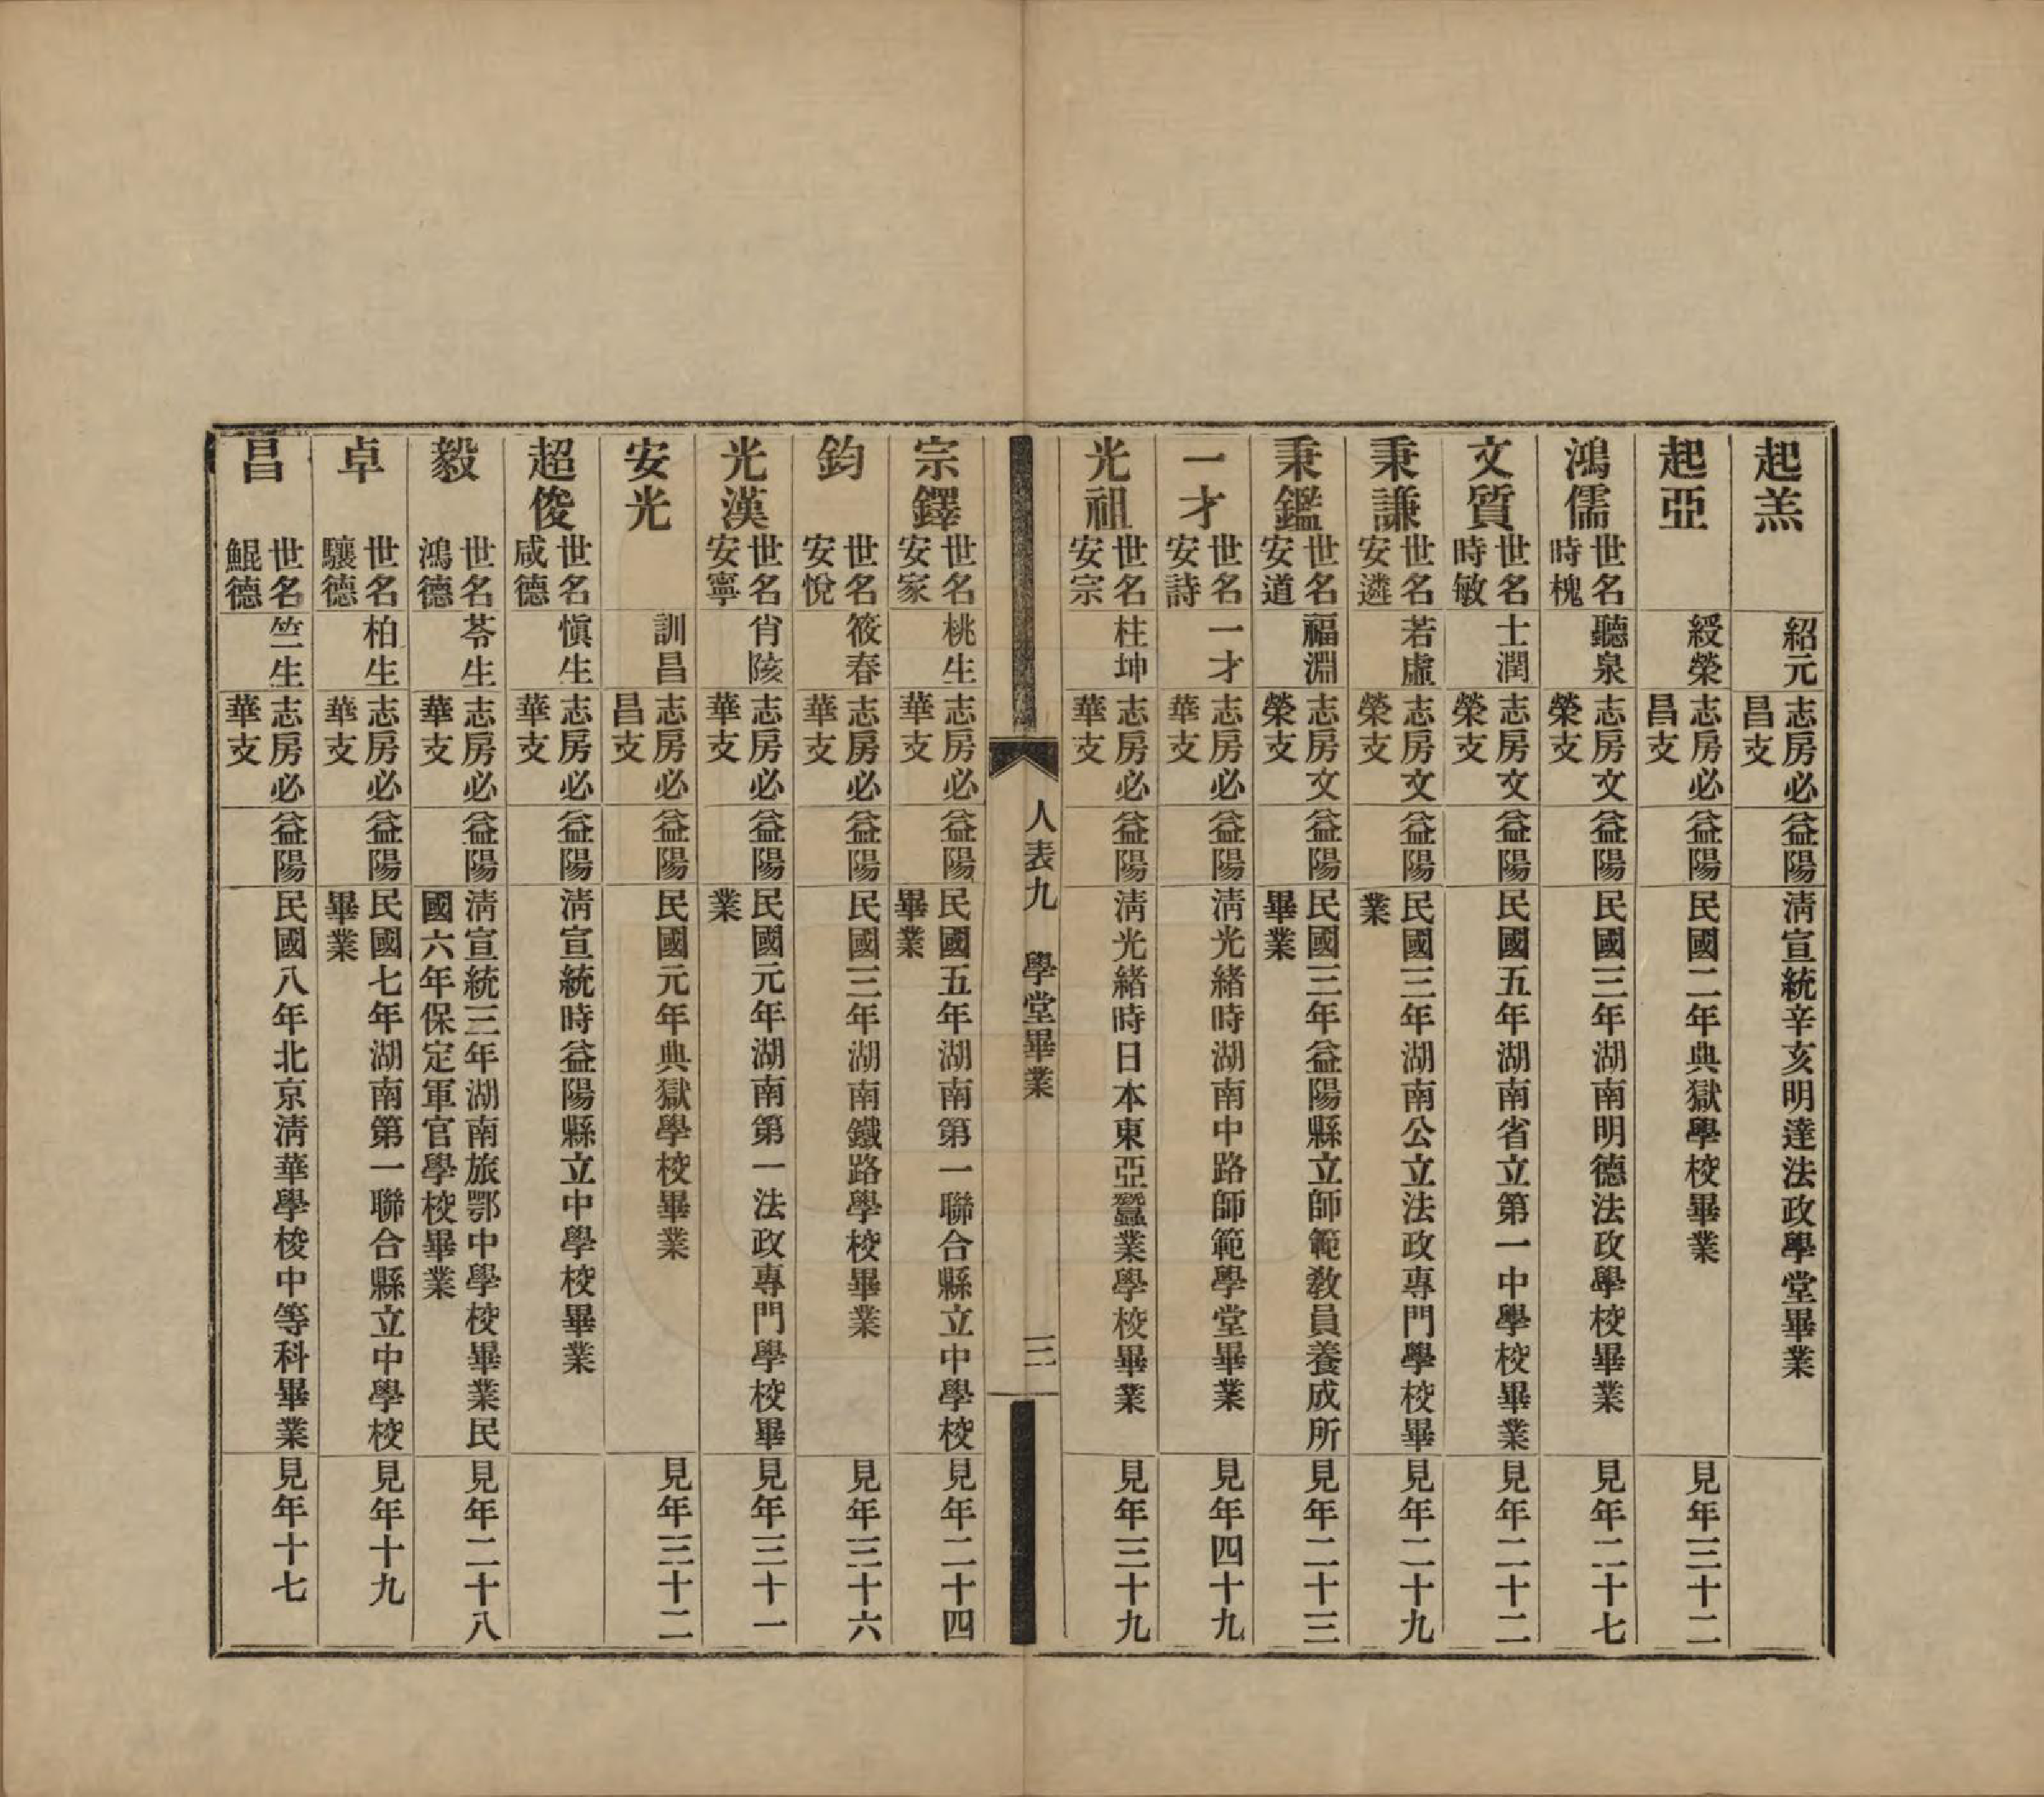 起羔 紹元 志房必昌支 益陽 淸宣統辛亥明達法政學堂畢業
起亞 綬榮 志房必昌支 益陽 民國二年典獄學校畢業 見年三十二
鴻儒 世名時槐 聽泉 志房文榮支 益陽 民國三年湖南明德法政學校畢業 見年二十七
文質 世名時敏 士潤 志房文榮支 益陽 民國五年湖南省立第一中學校畢業 見年二十二
秉謙 世名安遴 若虛 志房文榮支 益陽 民國三年湖南公立法政專門學校畢業 見年二十九
秉鑑 世名安道 福淵 志房文榮支 益陽 民國三年益陽縣立師範敎員養成所畢業 見年二十三
一才 世名安詩 一才 志房必華支 益陽 淸光緒時湖南中路師範學堂畢業 見年四十九
光祖 世名安宗 柱坤 志房必華支 益陽 淸光緒時日本東亞蠶業學校畢業 見年三十九
人表九 學堂畢業 三
宗鐸 世名安家 桃生 志房必華支 益陽 民國五年湖南第一聯合縣立中學校畢業 見年二十四
鈞 世名安悅 筱春 志房必華支 益陽 民國三年湖南鐵路學校畢業 見年三十六
光漢 世名安寧 肖陔 志房必華支 益陽 民國元年湖南第一法政專門學校畢業 見年三十一
安光 訓昌 志房必昌支 益陽 民國元年典獄學校畢業 見年三十二
超俊 世名咸德 愼生 志房必華支 益陽 淸宣統時益陽縣立中學校畢業
毅 世名鴻德 苓生 志房必華支 益陽 淸宣統三年湖南旅鄂中學校畢業民國六年保定軍官學校畢業 見年二十八
卓 世名驤德 柏生 志房必華支 益陽 民國七年湖南第一聯合縣立中學校畢業 見年十九
昌 世名鯤德 竺生 志房必華支 益陽 民國八年北京淸華學校中等科畢業 見年十七